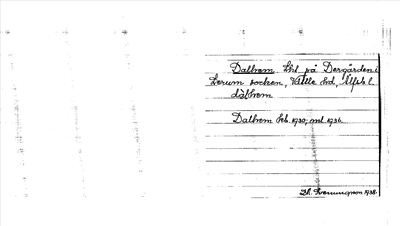 Dalhem. Lht på Dergården i
Lerum socken, Vättle hd, Älfsb l.
dalhem
Dalhem Jeb. 1930, ml. 1936.
Th. Svenungsson 1938.